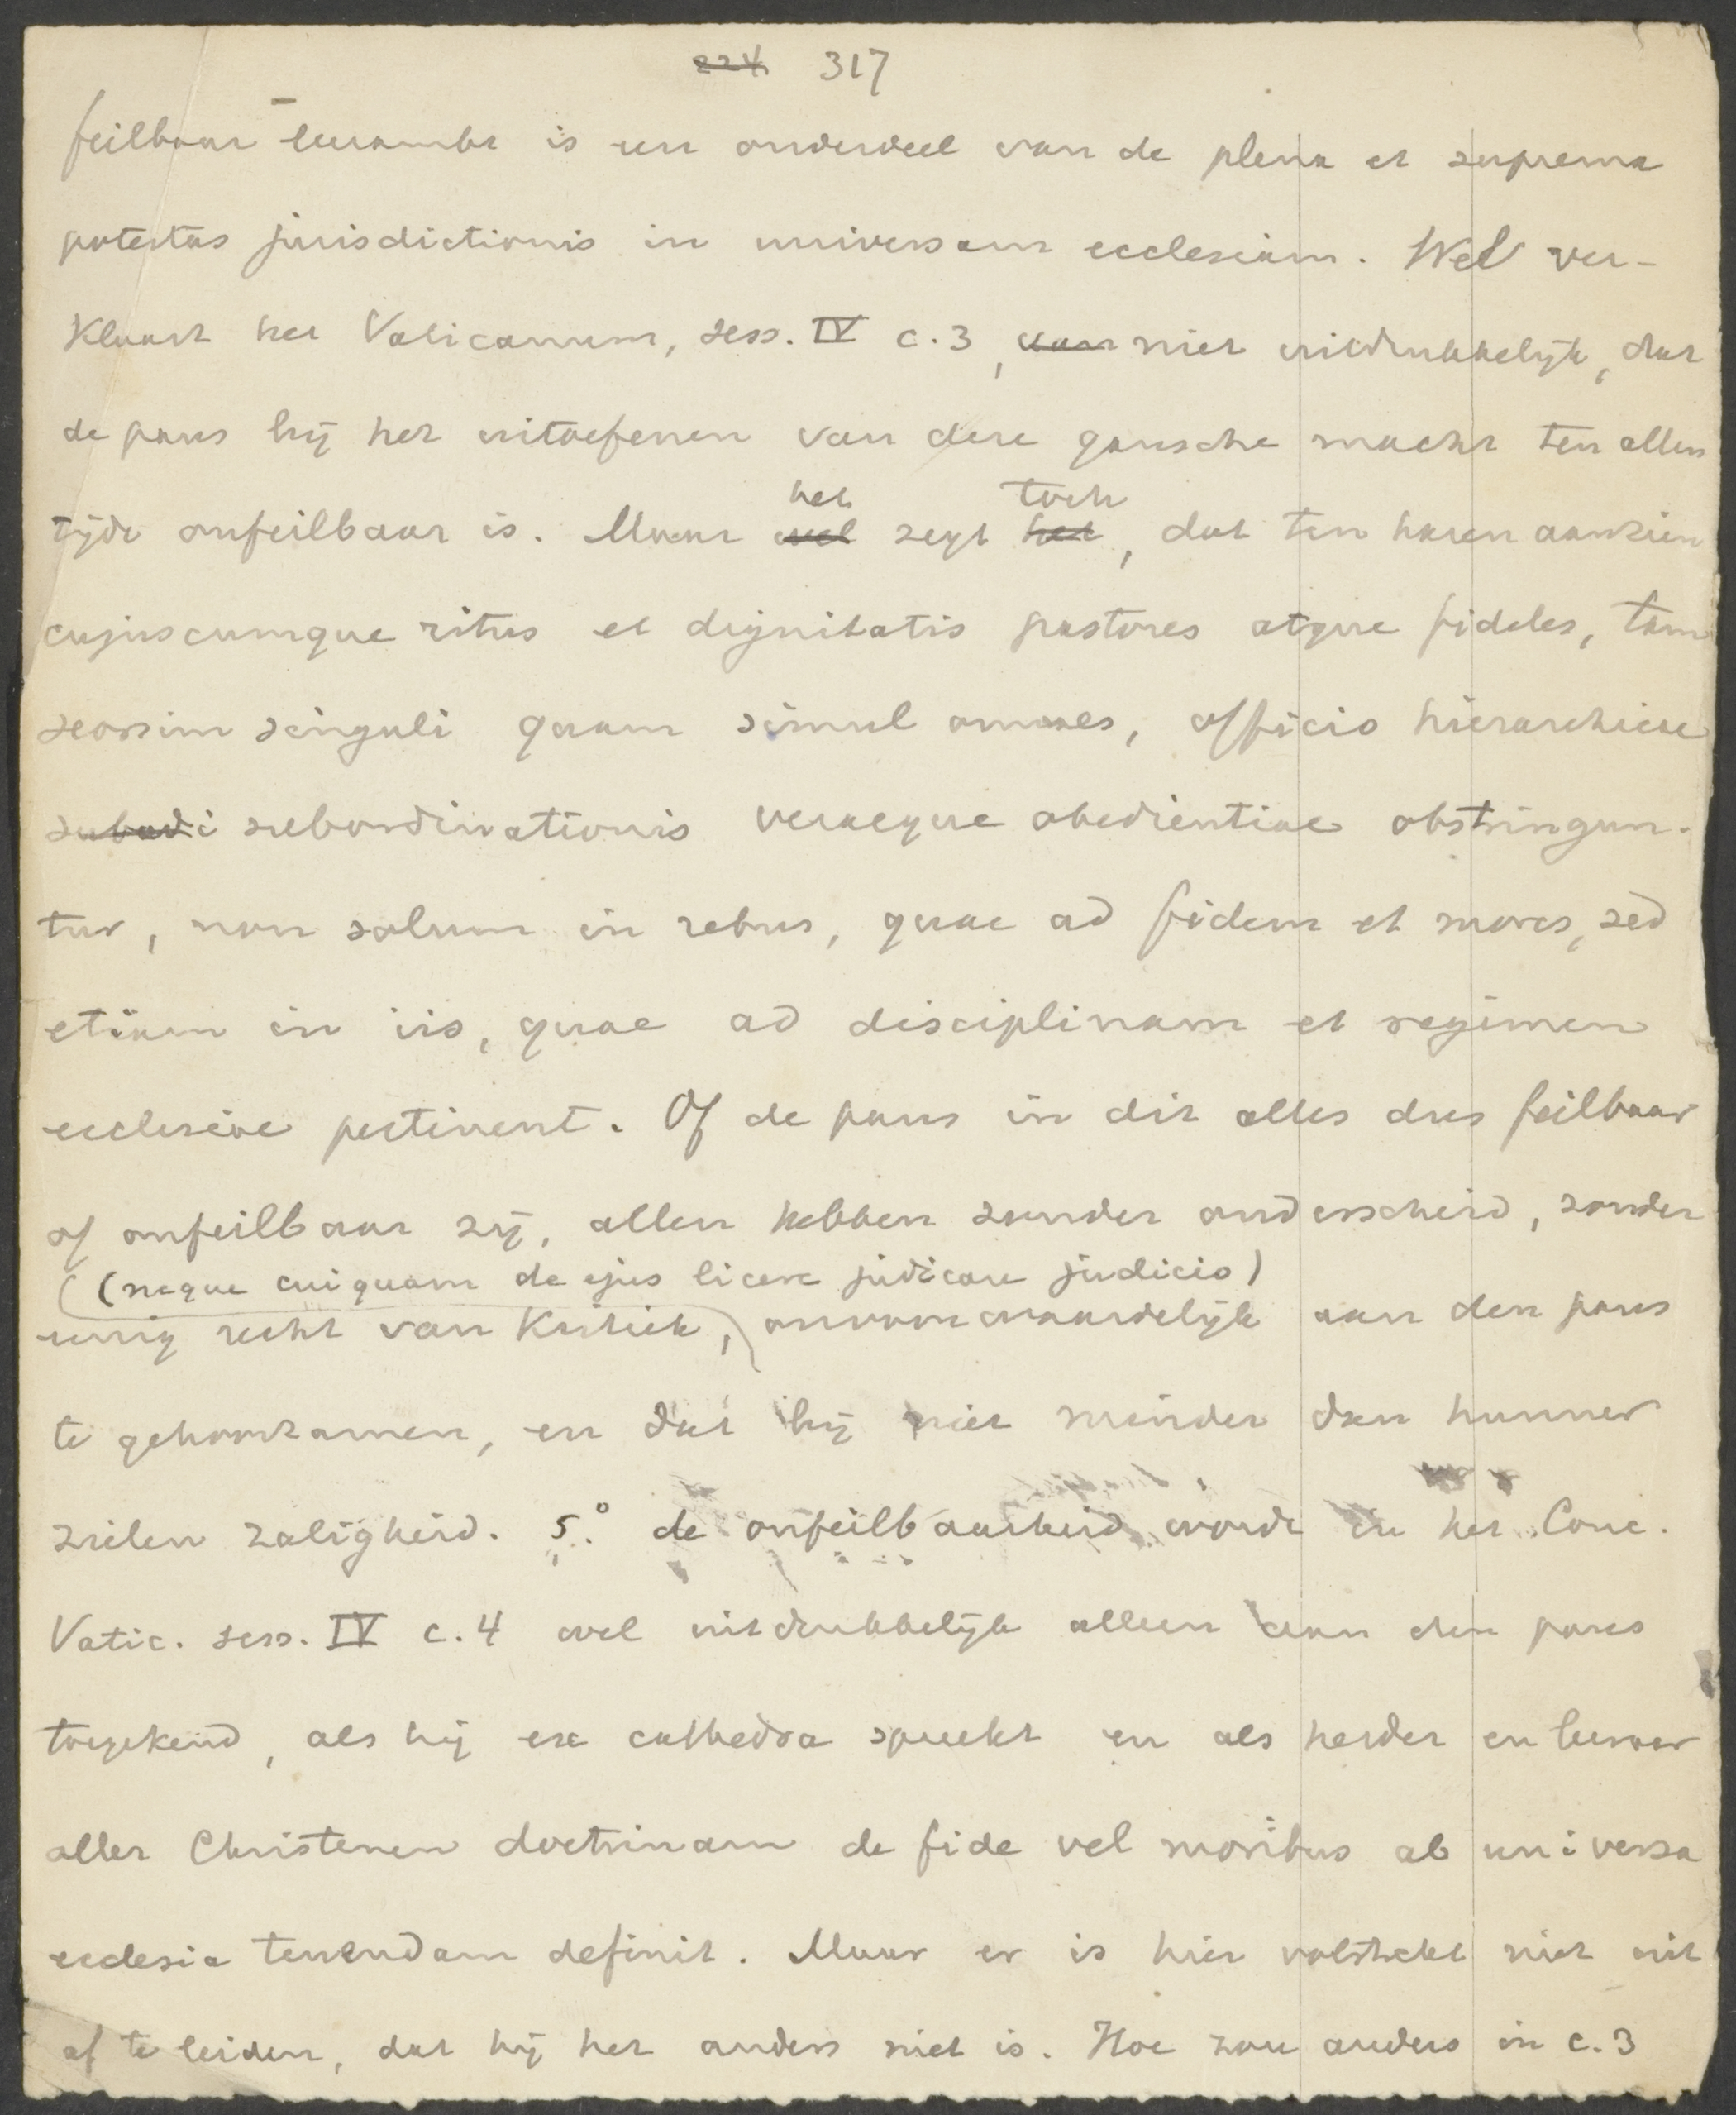 224 317
feilbaar leerambt is een onderdeel van de plena et suprema
potestas jurisdictionis in universam ecclesiam. Wel ver-
klaart het Vaticanum, sess. IV c. 3, van niet uitdrukkelijk, dat
de paus bij het uitoefenen van deze gansche macht ten allen
het toch
tijde onfeilbaar is. Maar wel zegt het, dat ten haren aanzien
cujuscumque ritus et dignitatis pastores atque fideles, tam
seorsim singuli quam simul omnes, officio hierarchicae
subordi subordinationis veraeque obedientiae obstringun-
tur, non solum in rebus, quae ad fidem et mores, sed
etiam in iis, quae ad disciplinam et regimen
ecclesiae pertinent. Of de paus in dit alles dus feilbaar
of onfeilbaar zij, allen hebben zonder onderscheid, zonder
(neque cuiquam de ejus licere judicare judicio)
eenig recht van kritiek, onvoorwaardelijk aan den paus
te gehoorzamen, en dat bij niet minder dan hunner
zielen zaligheid. 5.° de onfeilbaarheid wordt in het Conc.
Vatic. sess. IV c. 4 wel uitdrukkelijk alleen aan den paus
toegekend, als hij ex cathedra spreekt en als herder en leeraar
aller Christenen doctrinam de fide vel moribus ab universa
ecclesia tenendam definit. Maar er is hier volstrekt niet uit
af te leiden, dat hij het anders niet is. Hoe zou anders in c. 3